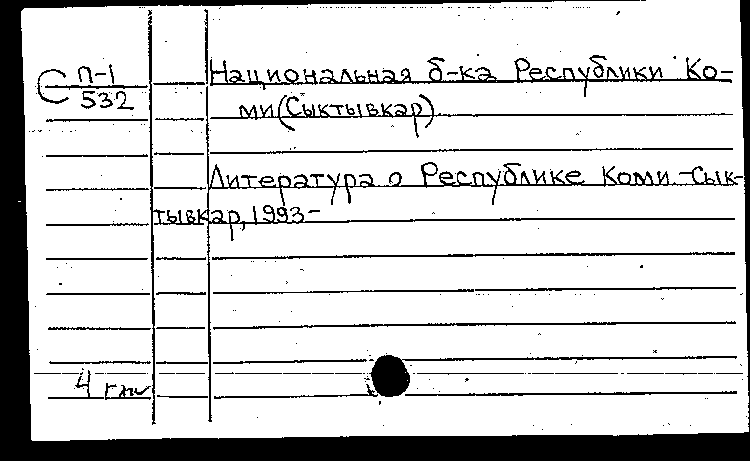 С П-1
532
Национальная б-ка Республики Ко-
ми (Сыктывкар).
Литература о Республике Коми. - Сык-
тывкар, 1993-
4